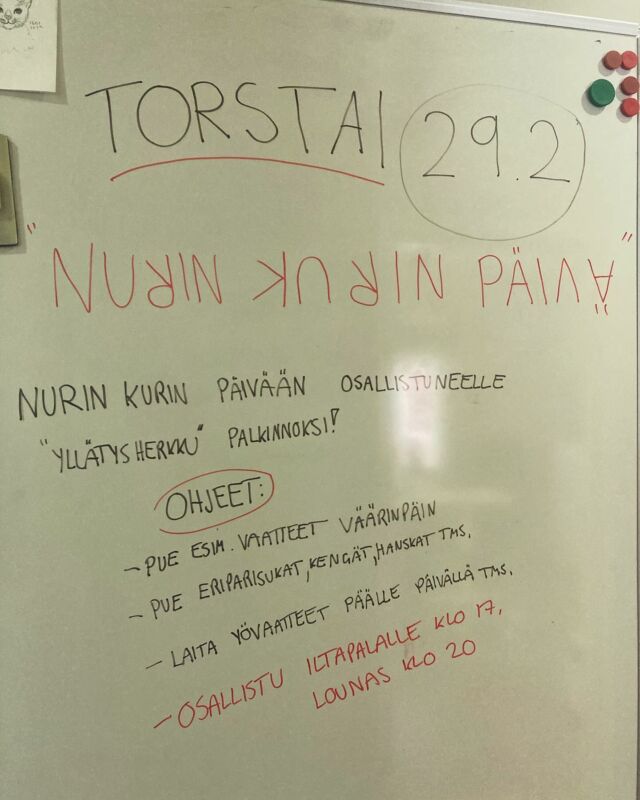 TORSTAI 29.2
"NURIN KURIN PÄIVÄ"
NURIN KURIN PÄIVÄÄN OSALLISTUNEELLE
"YLLÄTYSHERKKU" PALKINNOKSI!
OHJEET:
- PUE ESIM. VAATTEET VÄÄRINPÄIN
- PUE ERIPARISUKAT, KENGÄT, HANSKAT TMS.
- LAITA YÖVAATTEET PÄÄLLE PÄIVÄLLÄ TMS.
- OSALLISTU ILTAPALALLE KLO 17,
LOUNAS KLO 20